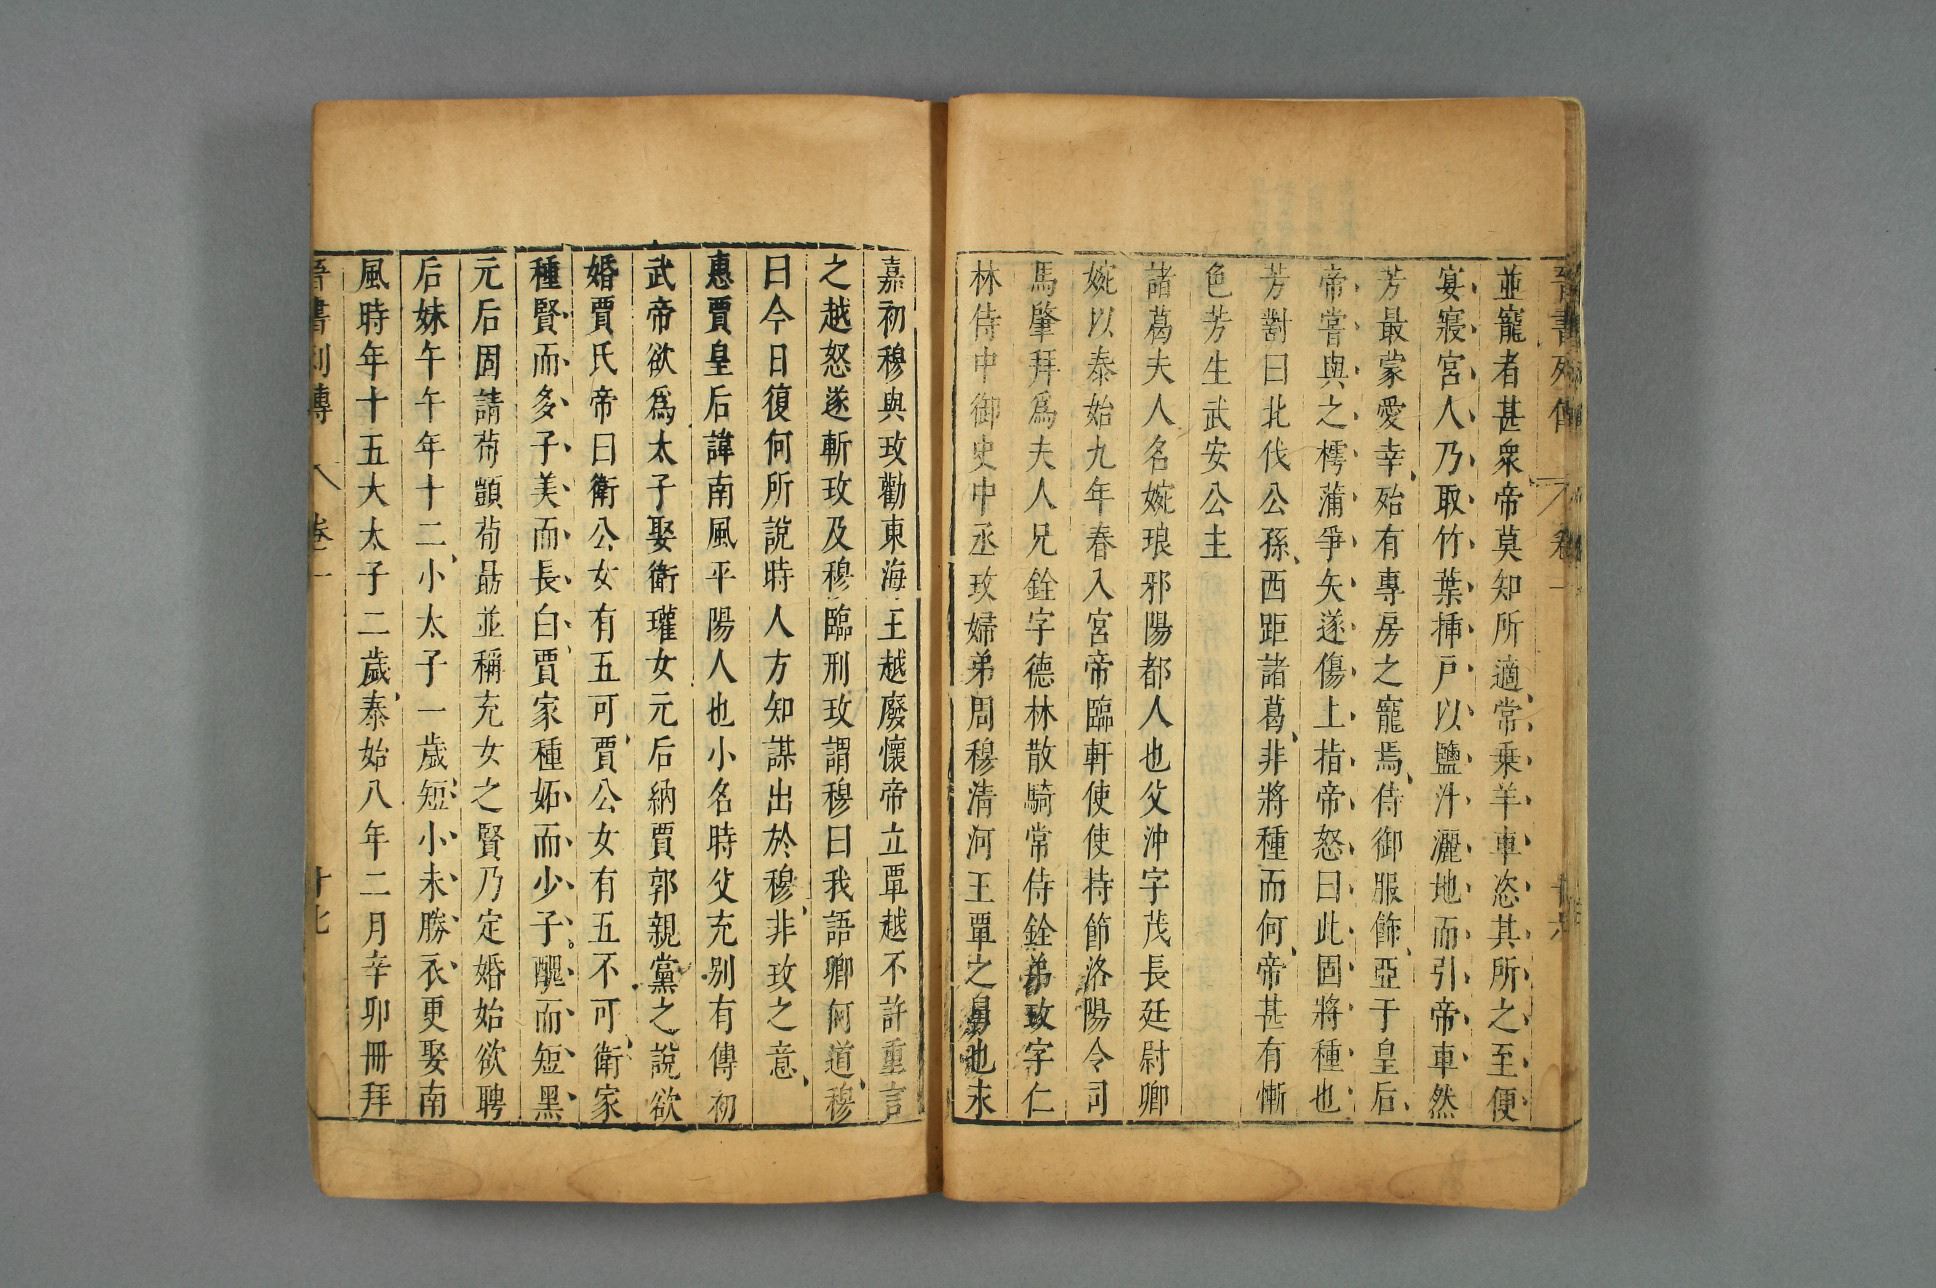 並寵者甚衆帝莫知所適常乗羊車恣其所之至便
宴寢宮人乃取竹葉揷戸以鹽汁灑地而引帝車然
芳最蒙愛幸殆有專房之寵焉侍御服飾亞于皇后
帝嘗與之樗蒲爭矢遂傷上指帝怒曰此固將種也
芳對曰北伐公孫西距諸葛非將種而何帝甚有慚
色芳生武安公主
諸葛夫人名婉琅邪陽都人也父沖字茂長廷尉卿
婉以泰始九年春入宮帝臨軒使使持節洛陽令司
馬肇拜爲夫人兄銓字德林散騎常侍銓弟玫字仁
林侍中御史中丞玫婦弟周穆清河王覃之舅也永
嘉初穆與玫勸東海王越廢懷帝立覃越不許重言
之越怒遂斬玫及穆臨刑玫謂穆曰我語卿何道穆
曰今日復何所說時人方知謀出於穆非玫之意
惠賈皇后諱南風平陽人也小名時父充别有傳初
武帝欲爲太子娶衛瓘女元后納賈郭親黨之說欲
婚賈氏帝曰衛公女有五可賈公女有五不可衛家
種賢而多子美而長白賈家種妬而少子醜而短黑
元后固請荀顗荀勗並稱充女之賢乃定婚始欲聘
后妹午午年十二小太子一歲短小未勝衣更娶南
風時年十五大太子二歲泰始八年二月辛卯冊拜
晉書列傳 卷一